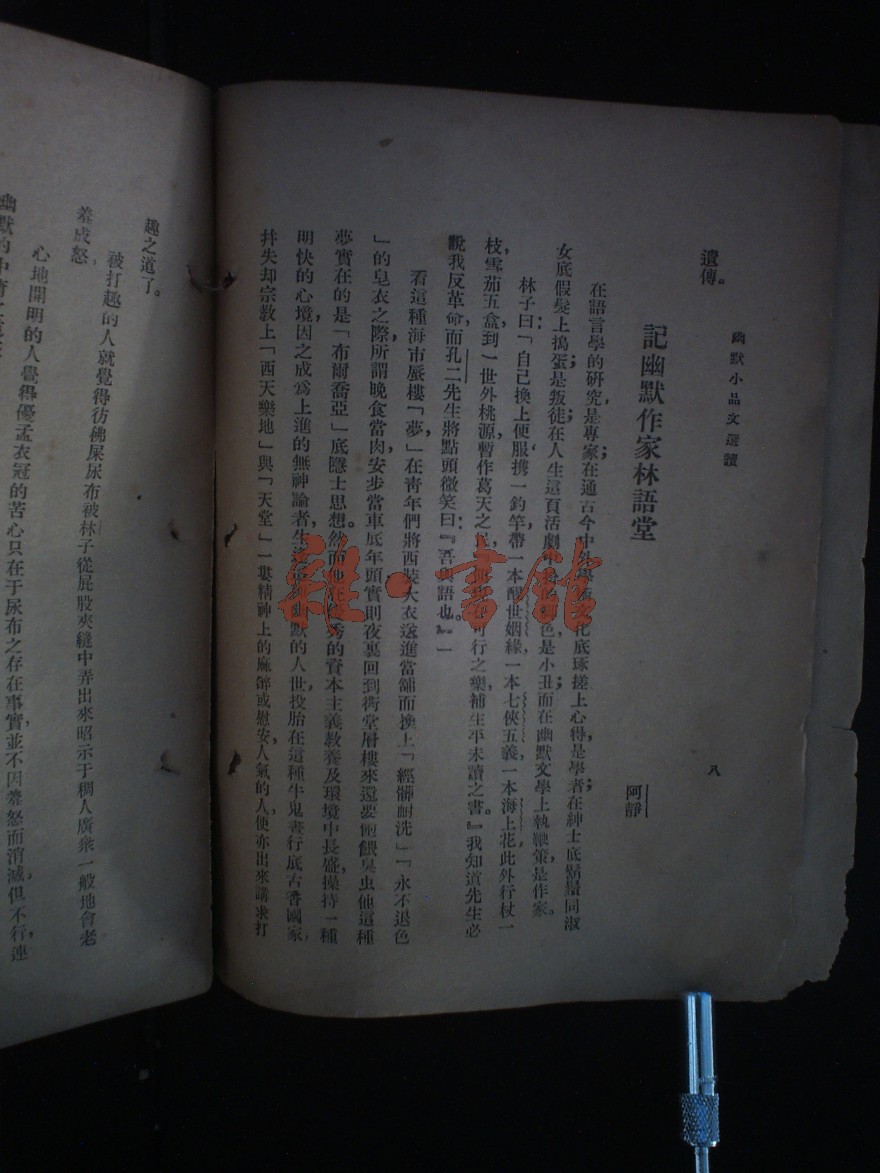 幽默小品文選讀
八
遺傳。
記幽默作家林語堂
阿靜
在語言學的研究，是專家；在通古今中學文化底琢搓上心得，是學者；在紳士底鬍鬚同淑
女底假髮上搗蛋，是叛徒；在人生這頁活劇中色，是小丑；而在幽默文學上執鞭策，是作家。
林子曰：「自己換上便服，携一釣竿，帶一本醒世姻緣，一本七俠五義，一本海上花，此外行杖一
枝，雪茄五盒，到一世外桃源，暫作葛天之可行之樂，補生平未讀之書。』我知道先生必
說我反革命，而孔二先生將點頭微笑曰：『吾與語也。』」
看這種海市蜃樓「夢」，在靑年們將西裝大衣送進當舖而換上「經髒耐洗」「永不退色
」的皂衣之際，所謂晚食當肉，安步當車底年頭，實則夜裏回到衖堂層樓來還要餵臭虫，他這種
夢實在的是「布爾喬亞」底隱士思想。然而他在秀的資本主義教養及環境中長盛，操持一種
明快的心境，因之成爲上進的無神論者，生默的人世，投胎在這種牛鬼晝行底古香國家，
拚失却宗教上「西天樂地」與「天堂」一類精神上的麻醉或慰安，人氣的人，便亦出來講求打
趣之道了。
被打趣的人就覺得彷彿屎尿布被林子從屁股夾縫中弄出來昭示于稠人廣衆一般地會老
羞成怒，
心地開明的人覺得優孟衣冠的苦心只在于尿布之存在事實，並不因羞怒而消滅，但不行，連
雜·書館